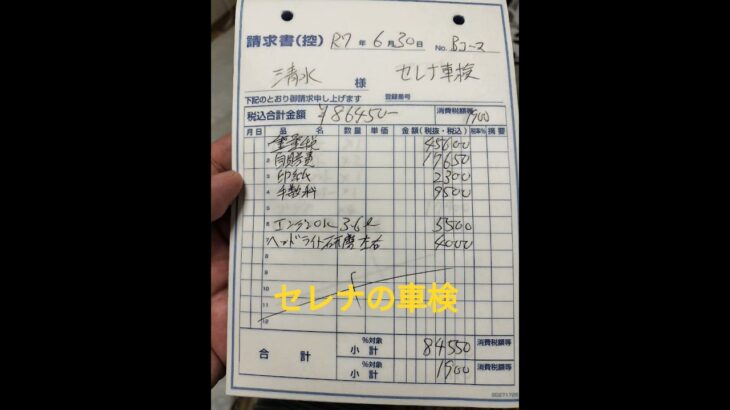 請求書(控) R7年6月30日 No. Bコース
清水 様 セレナ車検
下記のとおり御請求申し上げます 登録番号
税込合計金額 ¥86450- 消費税額等 1900
月日 品名 数量 単価 金額(税抜・税込) 税率% 摘要
重量税 45600
2 自賠責 17650
3 印紙代 2300
4 手数料 9500
5
6 エンジンOIL 3.6ℓ 5500
ヘッドライト研磨左右 4000
8
9
10
11
12
セレナの車検
合計 %対象 小計 84550 消費税額等
%対象 小計 1900 消費税額等